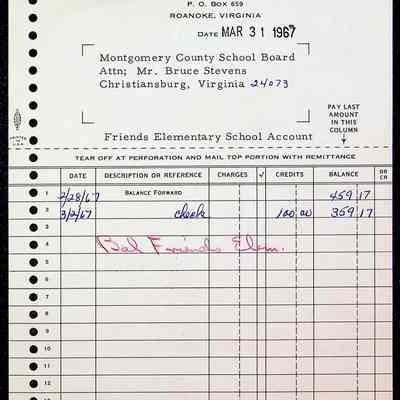 P. O. BOX 659
ROANOKE, VIRGINIA
DATE MAR 31 1967
Montgomery County School Board
Attn; Mr. Bruce Stevens
Christiansburg, Virginia 24073
PAY LAST
AMOUNT
IN THIS
COLUMN
PRINTED IN U.S.A.
Friends Elementary School Account
TEAR OFF AT PERFORATION AND MAIL TOP PORTION WITH REMITTANCE
DATE DESCRIPTION OR REFERENCE CHARGES ✓ CREDITS BALANCE DR CR
1 2/28/67 BALANCE FORWARD 459 17
2 3/2/67 check 100 00 359 17
3
4 Bal Friends Elem.
5
6
7
8
9
10
11
12